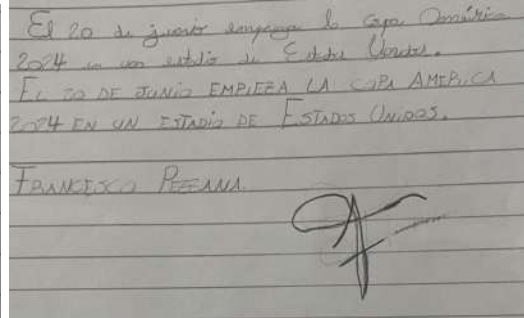 El 20 de junio empieza la Copa América
2024 en un estadio de Estados Unidos.
EL 20 DE JUNIO EMPIEZA LA COPA AMERICA
2024 EN UN ESTADIO DE ESTADOS UNIDOS.
FRANCESCO